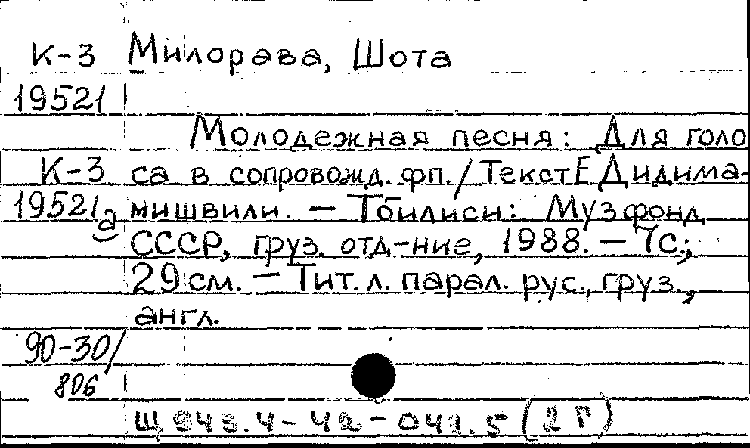 К-3 Милорава, Шота
19521
Молодежная песня: Для голо
К-3 са в сопровожд. фп./Текст Е Дидима-
19521а мишвили. — Тбилиси: Музфонд
СССР, груз. отд-ние, 1988. — 7с.;
29 см. — Тит. л. парал. рус., груз.,
англ.
90-30/
806
Щ 943.4-42-041.5 (2 Г)